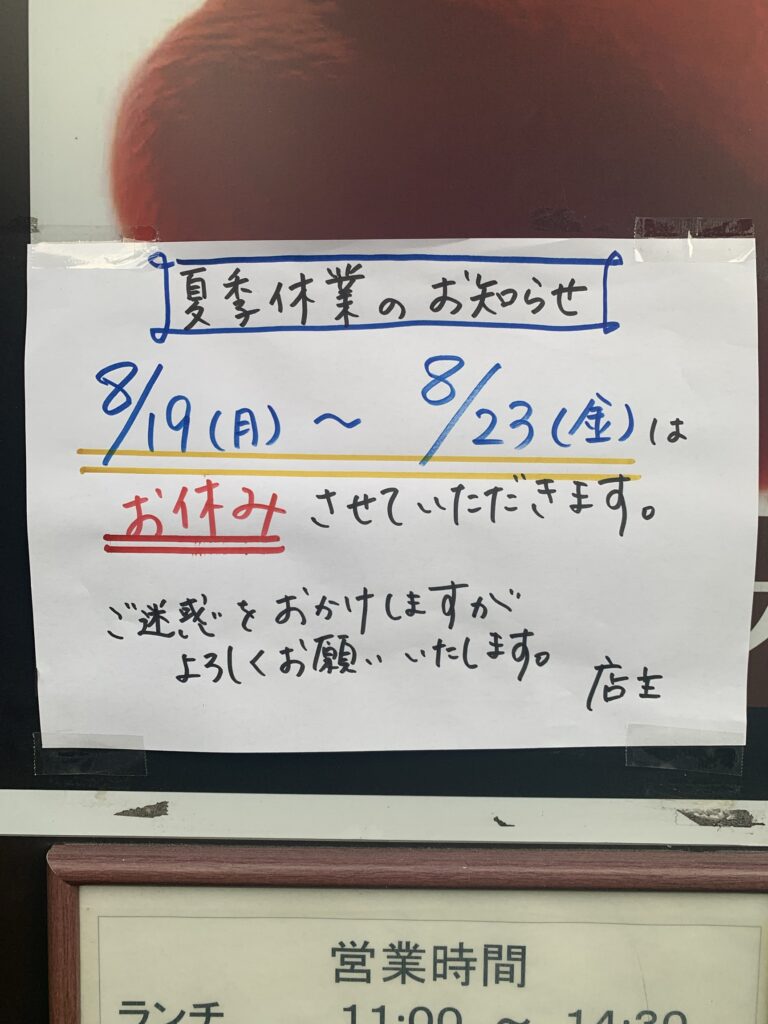 夏季休業のお知らせ
8/19(月) ～ 8/23(金)は
お休みさせていただきます。
ご迷惑をおかけしますが
よろしくお願いいたします。
店主
営業時間
ランチ 11:00 ～ 14:30